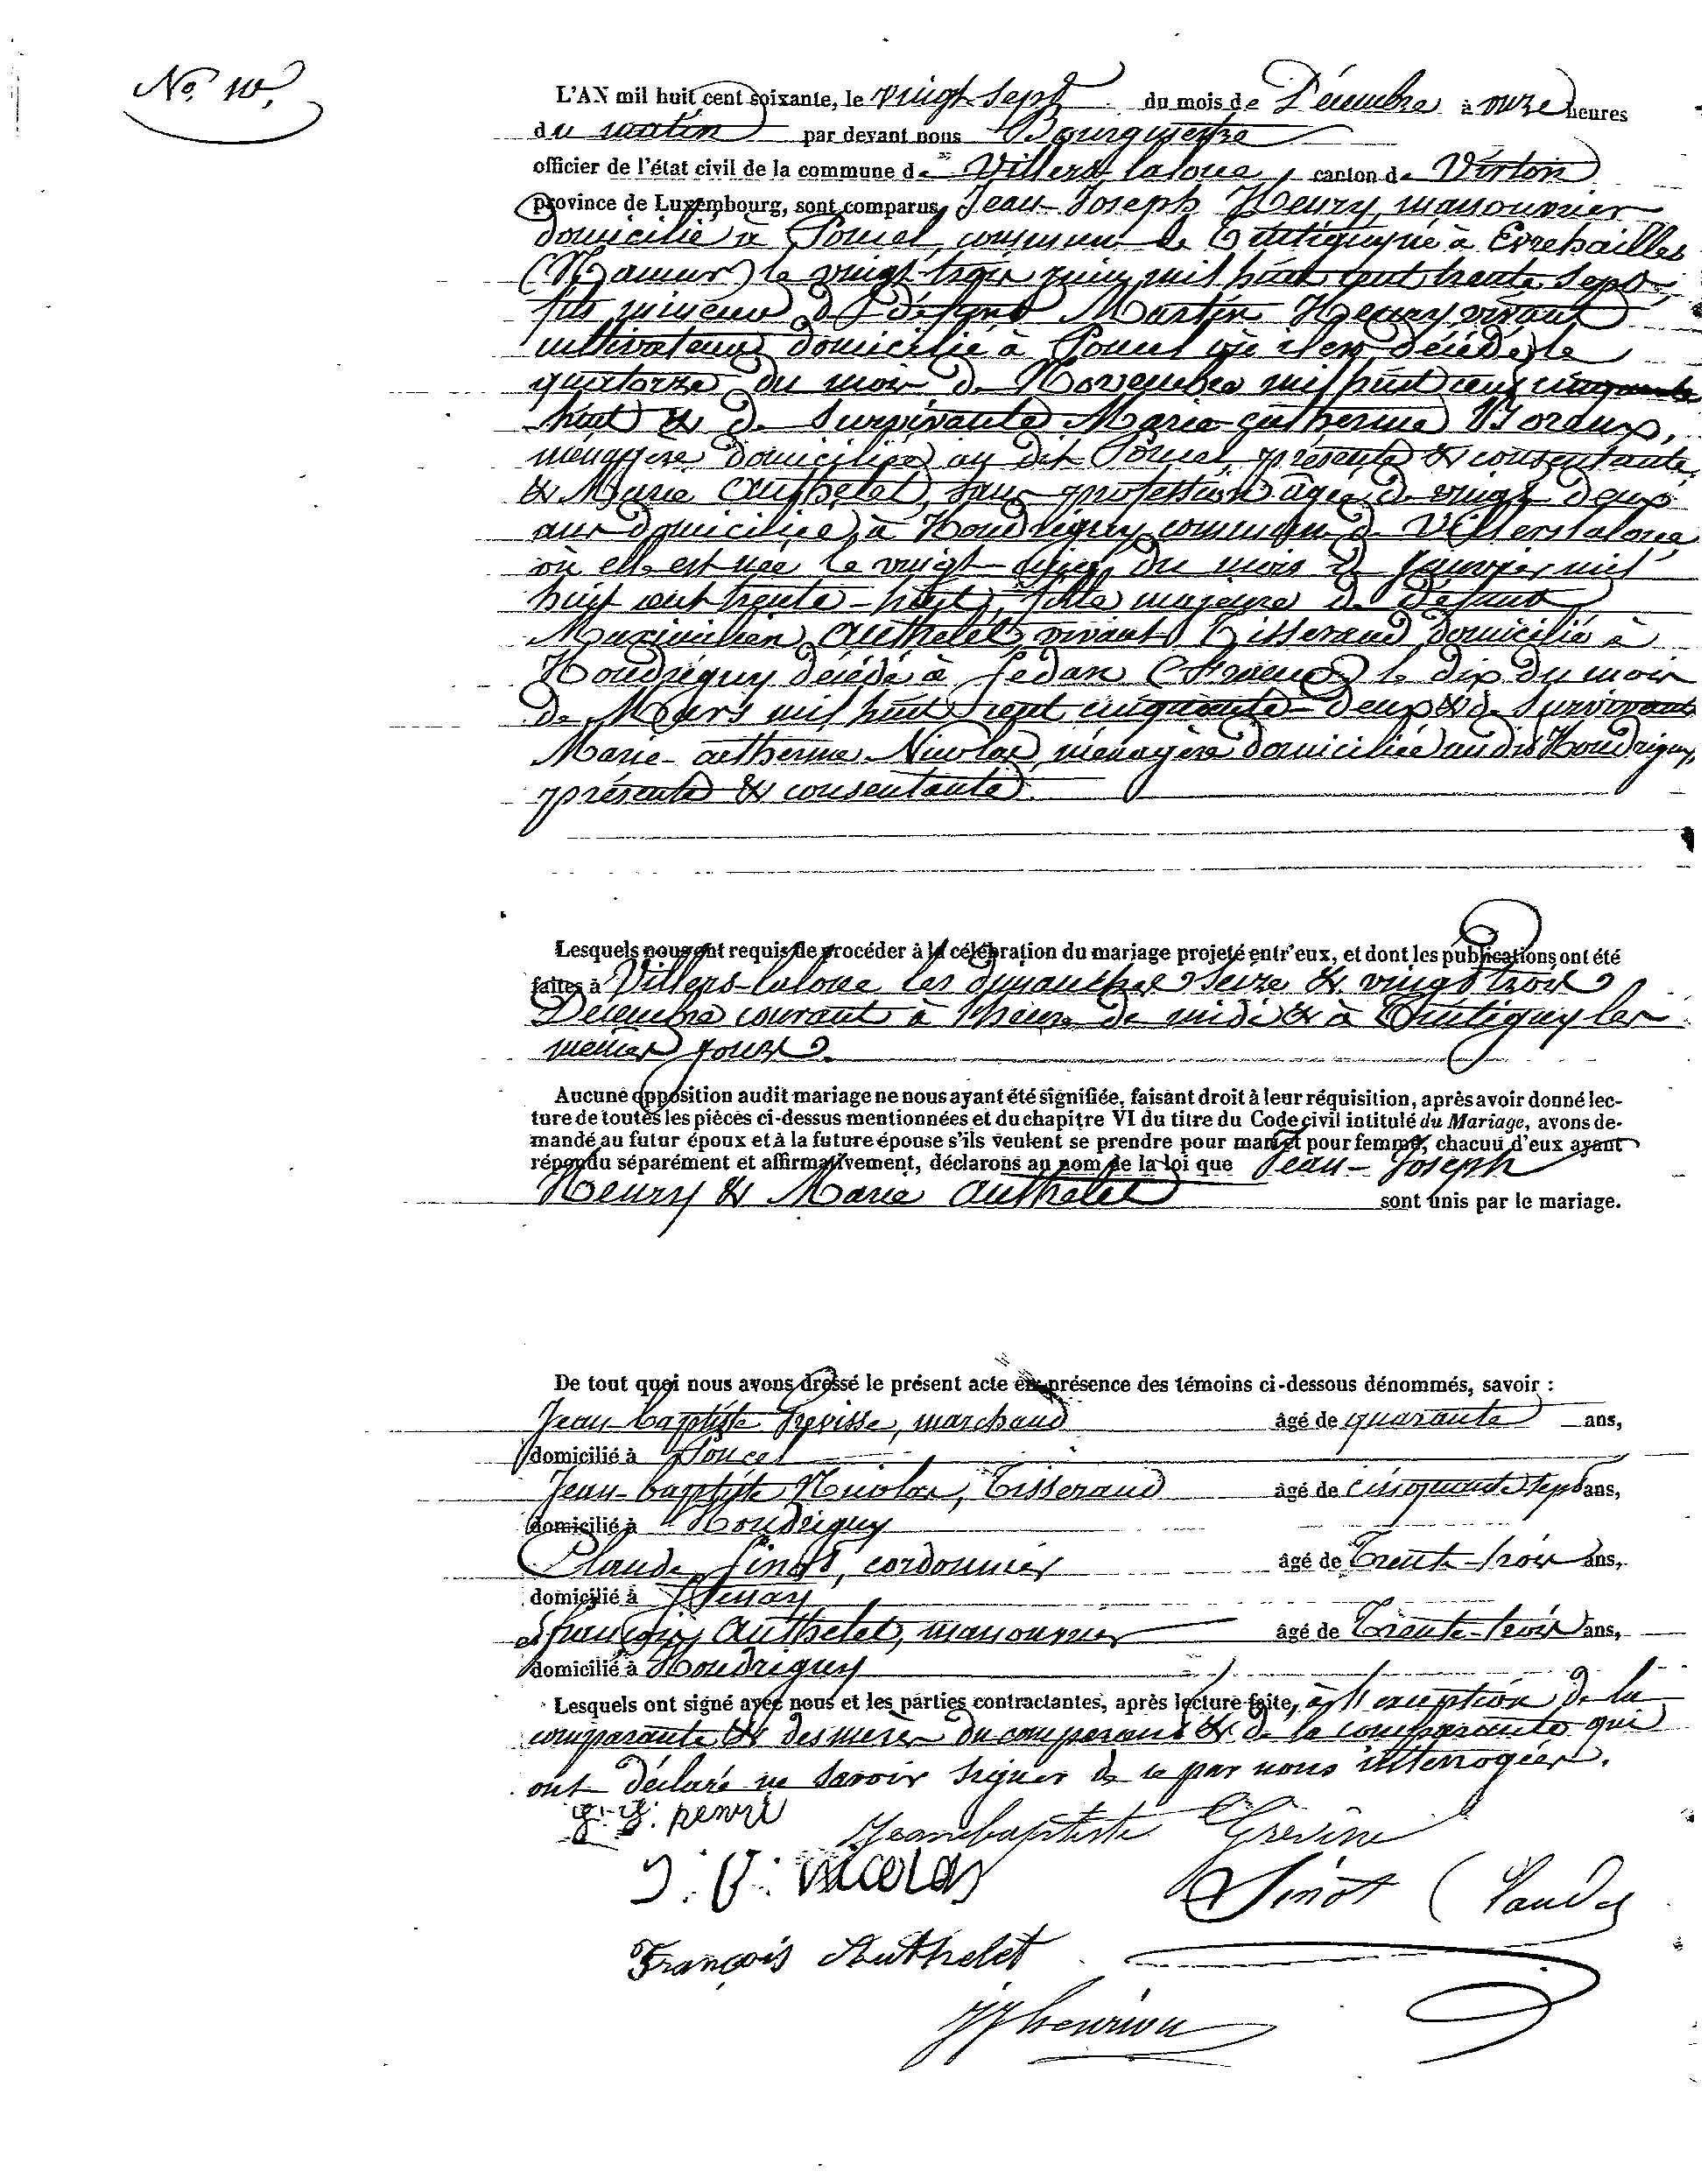 No. 10.
L'AN mil huit cent soixante, le vingt sept du mois de Décembre à onze heures
du matin par devant nous Bourgmestre
officier de l'état civil de la commune de Villers laloue, canton de Virton
province de Luxembourg, sont comparus Jean-Joseph Henry, manouvrier
domicilié à Poncel, commune de Tintigny né à Evrehailles
(Namur) le vingt trois juin mil huit cent trente sept,
fils mineur de défunt Martin Henry vivant
cultivateur domicilié à Poncel où il est décédé le
quatorze du mois de Novembre mil huit cent cinquante
huit & de survivante Marie-catherine
ménagère domiciliée au dit Poncel, présente & consentante,
& Marie Authelet, sans profession âgée de vingt deux
ans domiciliée à Houdrigny commune de Villers laloue
où elle est née le vingt du mois de Janvier mil
huit cent trente-huit, fille majeure de défunt
Maximilien Authelet, vivant Tisserand domicilié à
Houdrigny décédé à Sedan (france) le dix du mois
de Mars mil huit cent cinquante-deux & de survivante
Marie-catherine Nicolas, ménagère domiciliée au dit Houdrigny,
présente & consentante.
Lesquels nous ont requis de procéder à la célébration du mariage projeté entr'eux, et dont les publications ont été
faites à Villers-laloue les dimanches seize & vingt trois
Décembre courant à l'heure de midi & à Tintigny les
mêmes jours.
Aucune opposition audit mariage ne nous ayant été signifiée, faisant droit à leur réquisition, après avoir donné lec-
ture de toutes les pièces ci-dessus mentionnées et du chapitre VI du titre du Code civil intitulé du Mariage, avons de-
mandé au futur époux et à la future épouse s'ils veulent se prendre pour mari et pour femme, chacun d'eux ayant
répondu séparément et affirmativement, déclarons au nom de la loi que Jean-Joseph
Henry & Marie Authelet sont unis par le mariage.
De tout quoi nous avons dressé le présent acte en présence des témoins ci-dessous dénommés, savoir :
Jean-baptiste Grévisse, marchand âgé de quarante ans,
domicilié à Poncel
Jean-baptiste Nicolas, Tisserand âgé de cinquante sept ans,
domicilié à Houdrigny
Claude Sinot, cordonnier âgé de Trente-trois ans,
domicilié à
et françois Authelet, manouvrier âgé de Trente-trois ans,
domicilié à Houdrigny
Lesquels ont signé avec nous et les parties contractantes, après lecture faite, à l'exception de la
comparante & des mères du comparant & de la comparante qui
ont déclaré ne savoir signer de ce par nous interrogées.
J. J. henri
Jeanbaptiste Grévisse
J. B. Nicolas
Sinot Claude
François Authelet